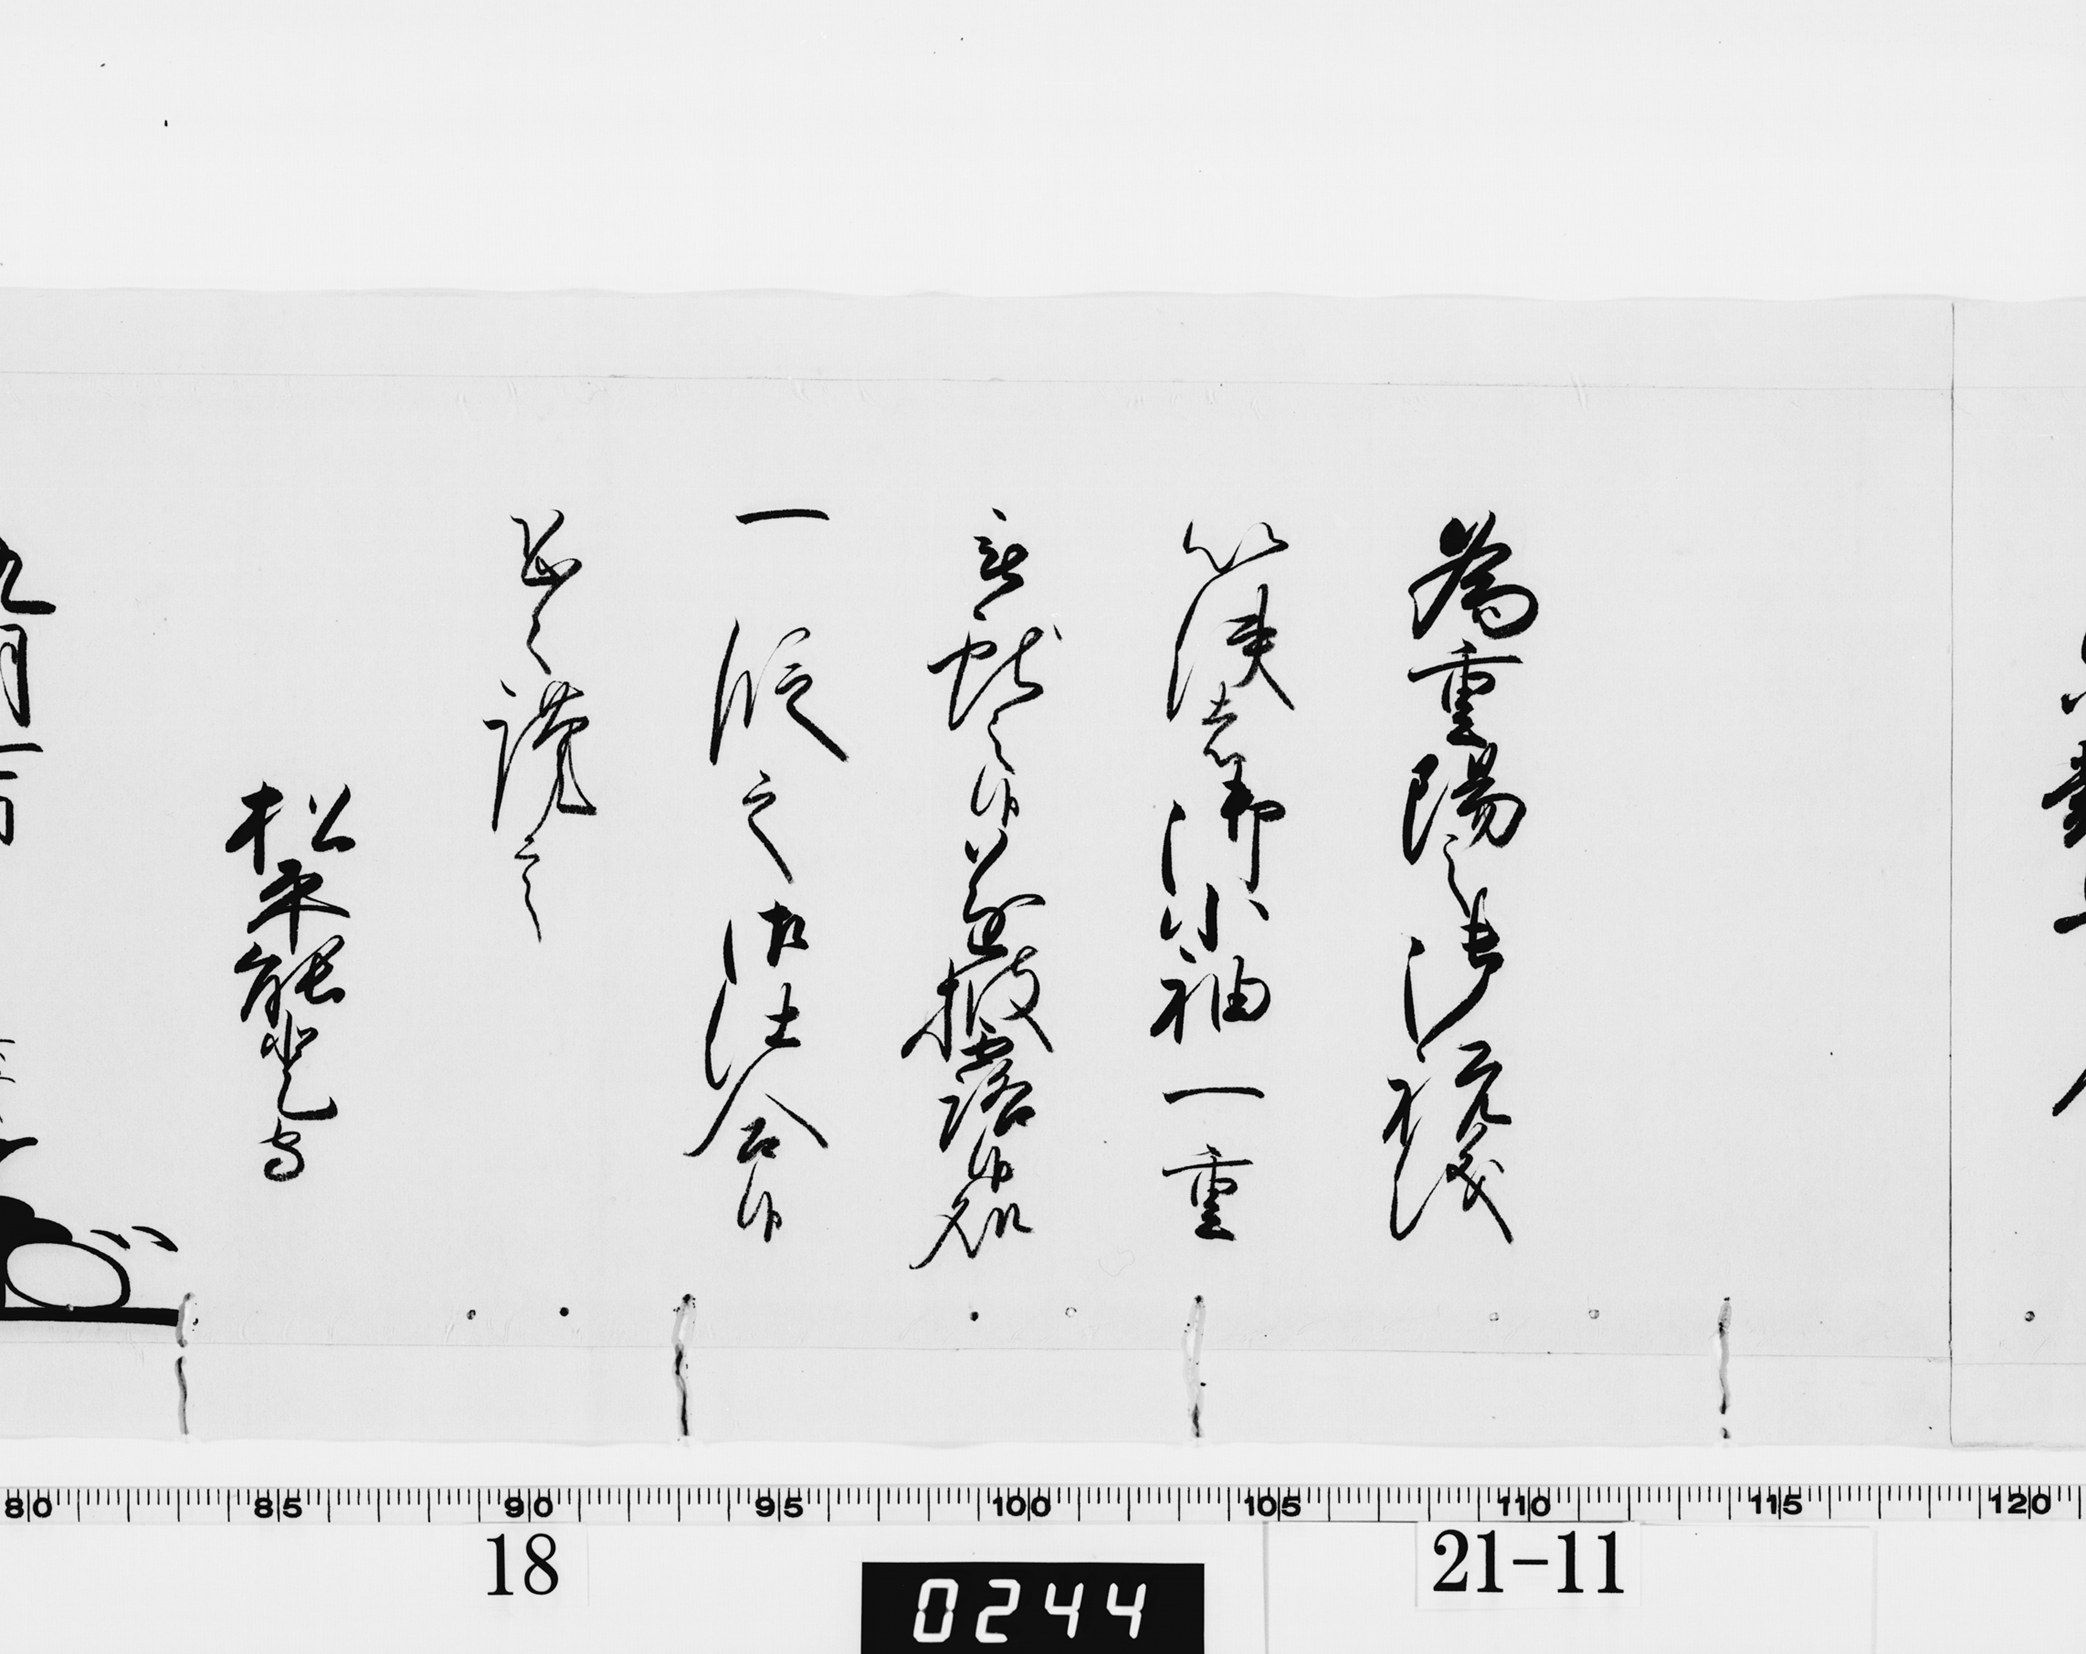 為重陽之御祝儀
以使者御小袖一重
献之候遂披露候処
一段之御仕合候
恐々謹言
松平能登守
九月
80 85 90 95 100 105 110 115 120
18
21-11
0244